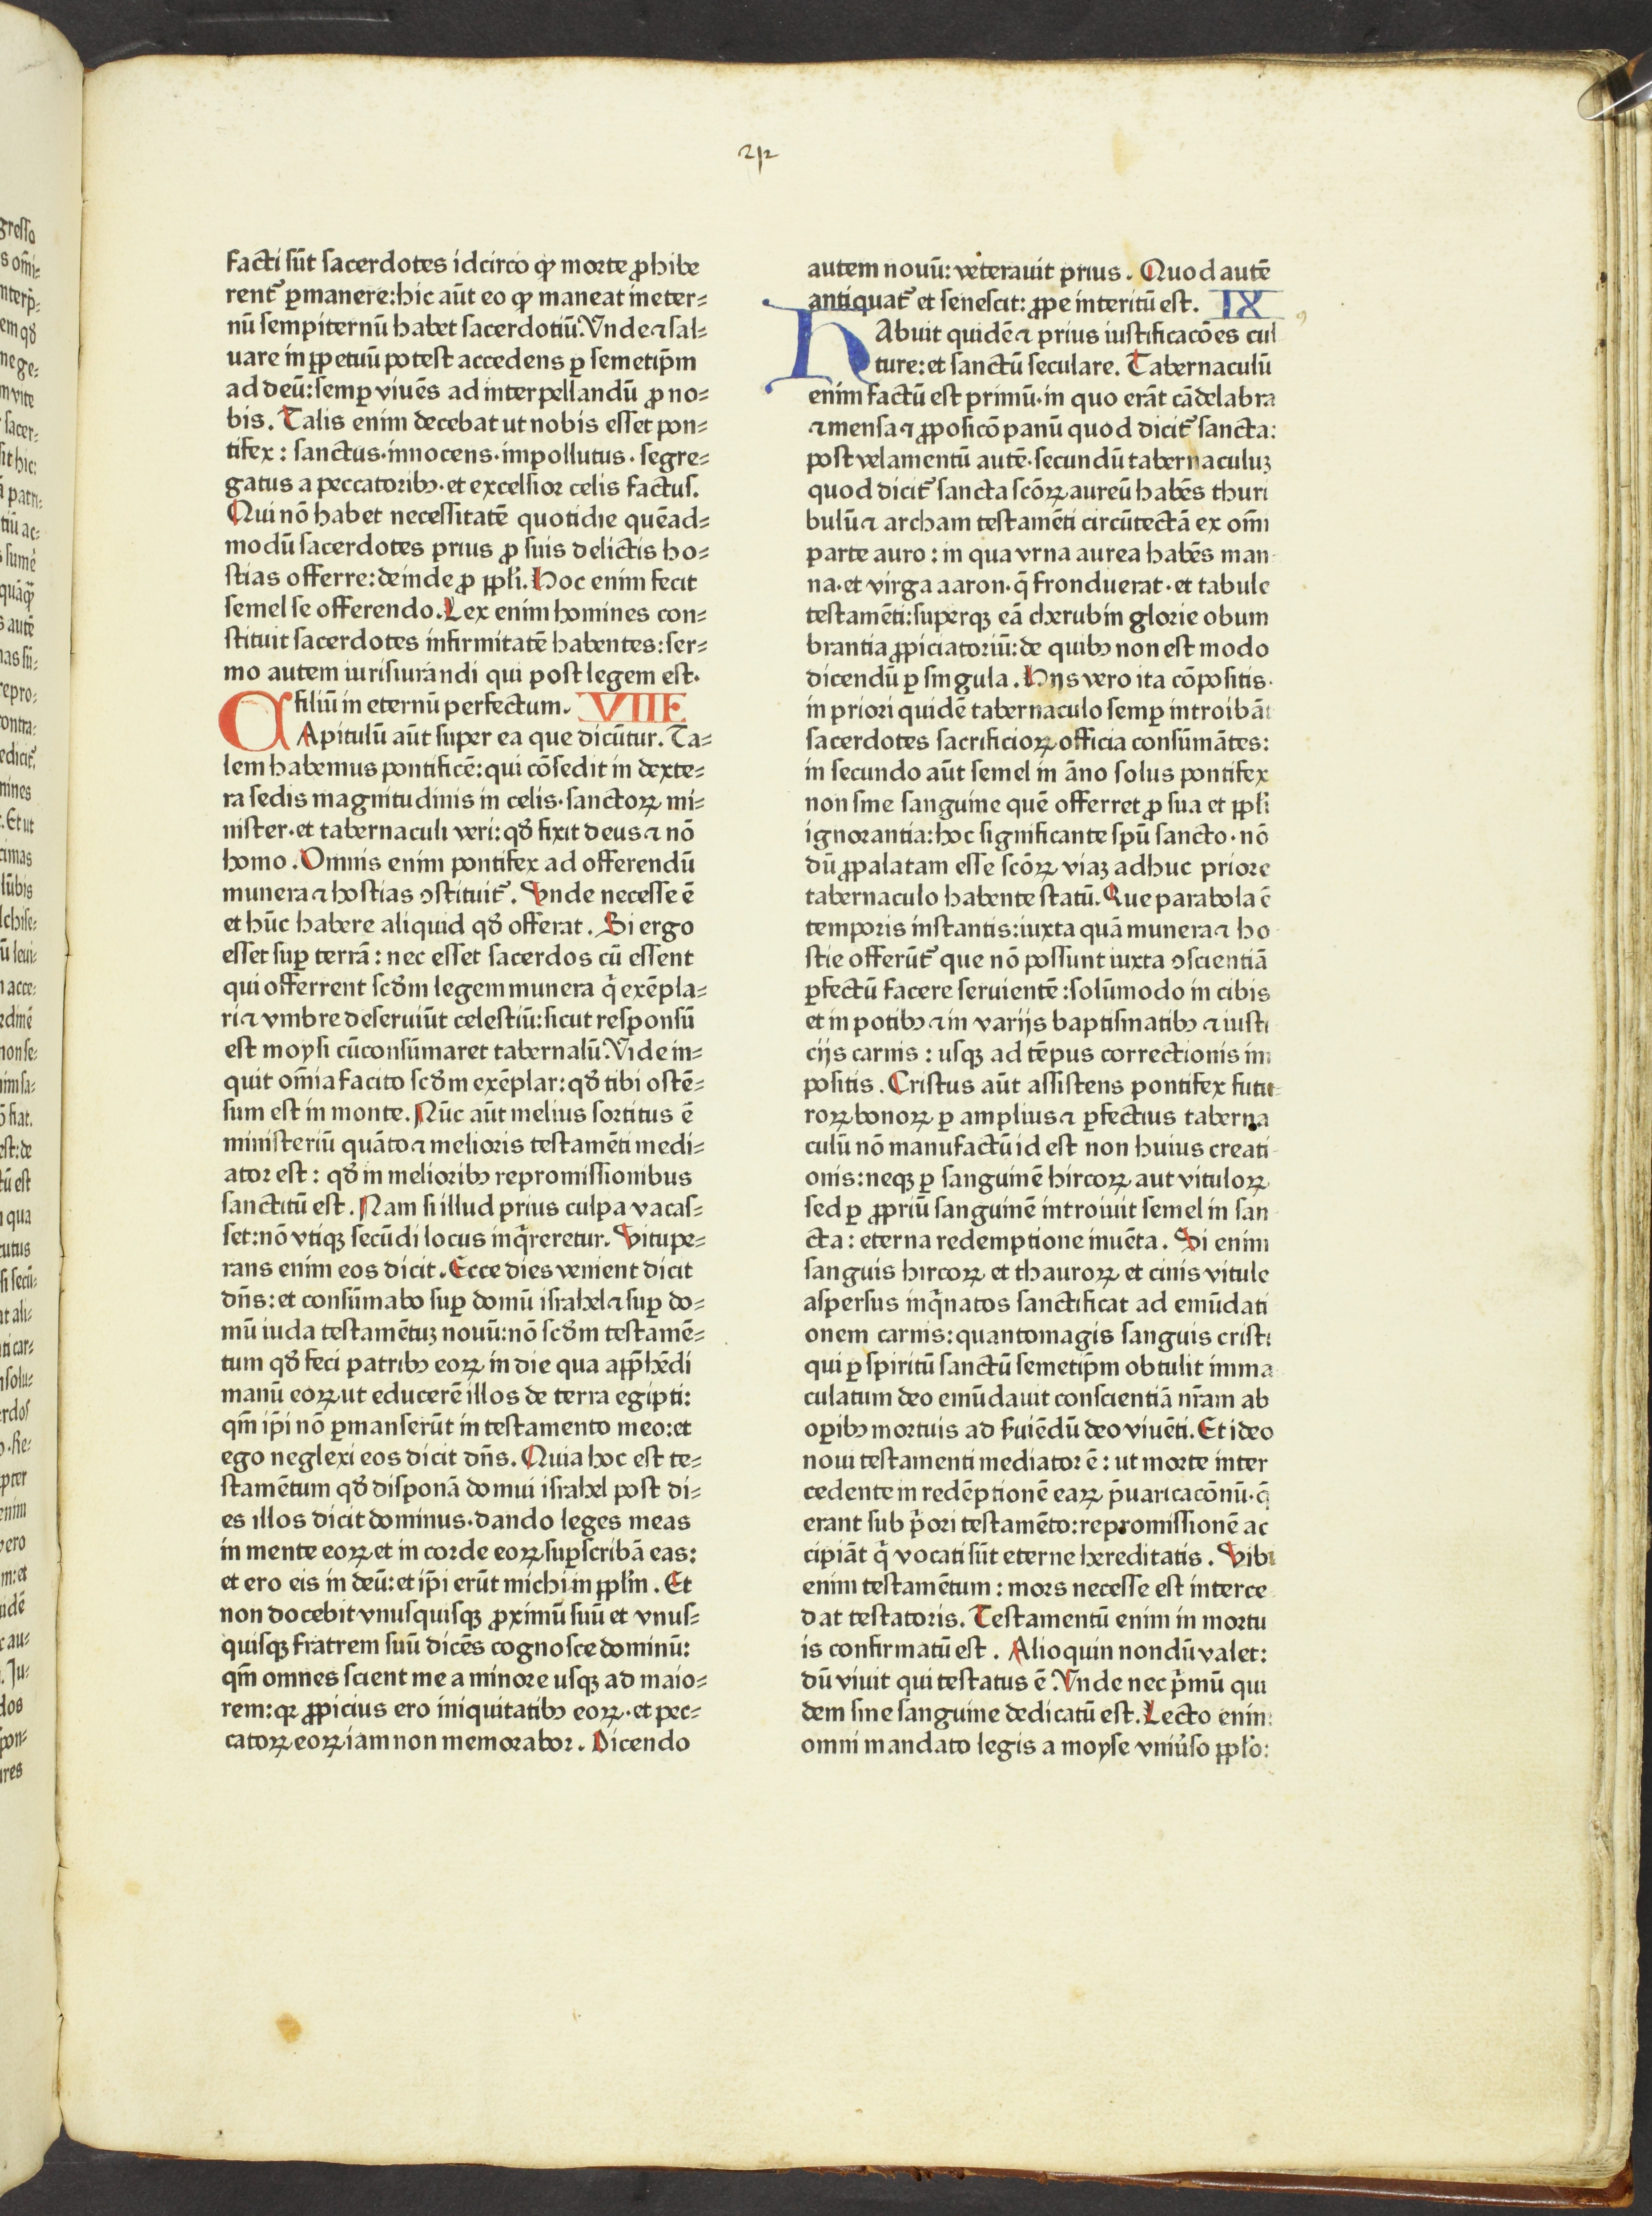 212
facti sūt sacerdotes idcirco ꝙ morte ꝓhibe
rent᷑ ꝑmanere:hic aūt eo ꝙ maneat in eter⸗
nū sempiternū habet sacerdotiū.Vnde ⁊ sal⸗
uare in ꝑpetuū potest accedens ꝑ semetip̄m
ad deū:semꝑ viuēs ad interpellandū ꝓ no⸗
bis. Talis enim decebat ut nobis esset pon⸗
tifex: sanctus·innocens·impollutus·segre⸗
gatus a peccatoribꝫ·et excelsior celis factus.
Qui nō habet necessitatē quotidie quēad⸗
modū sacerdotes prius ꝓ suis delictis ho⸗
stias offerre:deinde ꝓ ppl̄i. Hoc enim fecit
semel se offerendo.Lex enim homines con⸗
stituit sacerdotes infirmitatē habentes:ser⸗
mo autem iurisiurandi qui post legem est·
filiū in eternū perfectum. VIII
CApitulū aūt super ea que dicūtur. Ta⸗
lem habemus pontificē:qui cōsedit in dexte⸗
ra sedis magnitudinis in celis·sanctoꝝ mi⸗
nister·et tabernaculi veri:qḋ fixit deus ⁊ nō
homo. Omnis enim pontifex ad offerendū
munera ⁊ hostias ↄstituit᷑. Vnde necesse ē
et hūc habere aliquid qḋ offerat. Si ergo
esset suꝑ terrā: nec esset sacerdos cū essent
qui offerrent scḋm legem munera q̄ exēpla⸗
ri ⁊ vmbre deseruiūt celestiū:sicut responsū
est moysi cū consūmaret tabernalū.Vide in⸗
quit om̄ia facito scḋm exēplar:qḋ tibi ostē⸗
sum est in monte. Nūc aūt melius sortitus ē
ministeriū quāto ⁊ melioris testamēti medi⸗
ator est: qḋ in melioribꝫ repromissionibus
sanctitū est. Nam si illud prius culpa vacas⸗
set:nō vtiqꝫ secūdi locus inq̄reretur. Vitupe⸗
rans enim eos dicit. Ecce dies venient dicit
dn̄s: et consūmabo suꝑ domū israhel ⁊ suꝑ do⸗
mū iuda testamētuꝫ nouū:nō scḋm testamē⸗
tum qḋ feci patribꝫ eoꝝ in die qua app̄hēdi
manū eoꝝ ut educerē illos de terra egipti:
qm̄ ip̄i nō ꝑmanserūt in testamento meo:et
ego neglexi eos dicit dn̄s. Quia hoc est te⸗
stamētum qḋ disponā domui israhel post di⸗
es illos dicit dominus·dando leges meas
in mente eoꝝ et in corde eoꝝ suꝑscribā eas:
et ero eis in deū:et ip̄i erūt michi in ppl̄m. Et
non docebit vnusquisqꝫ ꝓximū suū et vnus⸗
quisqꝫ fratrem suū dicēs cognosce dominū:
qm̄ omnes scient me a minore usqꝫ ad maio⸗
rem:qꝛ ꝓpicius ero iniquitatibꝫ eoꝝ·et pec⸗
catoꝝ eoꝝ iam non memorabor. Dicendo
autem nouū: veterauit prius. Quod autē
antiquat᷑ et senescit: ꝓpe interitū est. IX
HAbuit quidē ⁊ prius iustificacōes cul
ture:et sanctū seculare. Tabernaculū
enim factū est primū·in quo erāt cādelabra
⁊ mensa ⁊ ꝓposicō panū quod dicit᷑ sancta:
post velamentū autē·secundū tabernaculuꝫ
quod dicit᷑ sancta scōꝝ aureū habēs thuri
bulū ⁊ archam testamēti circūtectā ex om̄i
parte auro: in qua vrna aurea habēs man
na·et virga aaron·q̄ fronduerat·et tabule
testamēti:superqꝫ eā cherubin glorie obum
brantia ꝓpiciatoriū:de quibꝫ non est modo
dicendū ꝑ singula. Hijs vero ita cōpositis·
in priori quidē tabernaculo semꝑ introibāt
sacerdotes sacrificioꝝ officia consūmātes:
in secundo aūt semel in āno solus pontifex
non sine sanguine quē offerret ꝓ sua et ppl̄i
ignorantia:hoc significante spū sancto·nō
dū ꝓpalatam esse scōꝝ viaꝫ adhuc priore
tabernaculo habente statū.Que parabola ē
temporis instantis:iuxta quā munera ⁊ ho
stie offerūt᷑ que nō possunt iuxta ↄscientiā
ꝑfectū facere seruientē:solūmodo in cibis
et in potibꝫ ⁊ in varijs baptismatibꝫ ⁊ iusti
cijs carnis: usqꝫ ad tēpus correctionis im
positis. Cristus aūt assistens pontifex futu
roꝝ bonoꝝ ꝑ amplius ⁊ ꝑfectius taberna
culū nō manufactū id est non huius creati
onis:neqꝫ ꝑ sanguinē hircoꝝ aut vituloꝝ
sed ꝑ ꝓpriū sanguinē introiuit semel in san
cta: eterna redemptione inuēta. Si enim
sanguis hircoꝝ et thauroꝝ et cinis vitule
aspersus inq̄natos sanctificat ad emūdati
onem carnis:quantomagis sanguis cristi
qui ꝑ spiritū sanctū semetip̄m obtulit imma
culatum deo emūdauit conscientiā nr̄am ab
oꝑibꝫ mortuis ad ẜuiēdū deo viuēti. Et ideo
noui testamenti mediator ē: ut morte inter
cedente in redēptionē eaꝝ p̄uaricacōnū·q̄
erant sub p̄ori testamēto:repromissionē ac
cipiāt q̄ vocati sūt eterne hereditatis. Vbi
enim testamētum: mors necesse est interce
dat testatoris. Testamentū enim in mortu
is confirmatū est. Alioquin nondū valet:
dū viuit qui testatus ē.Vnde nec p̄mū qui
dem sine sanguine dedicatū est. Lecto enim
omni mandato legis a moyse vniūso ppl̄o: